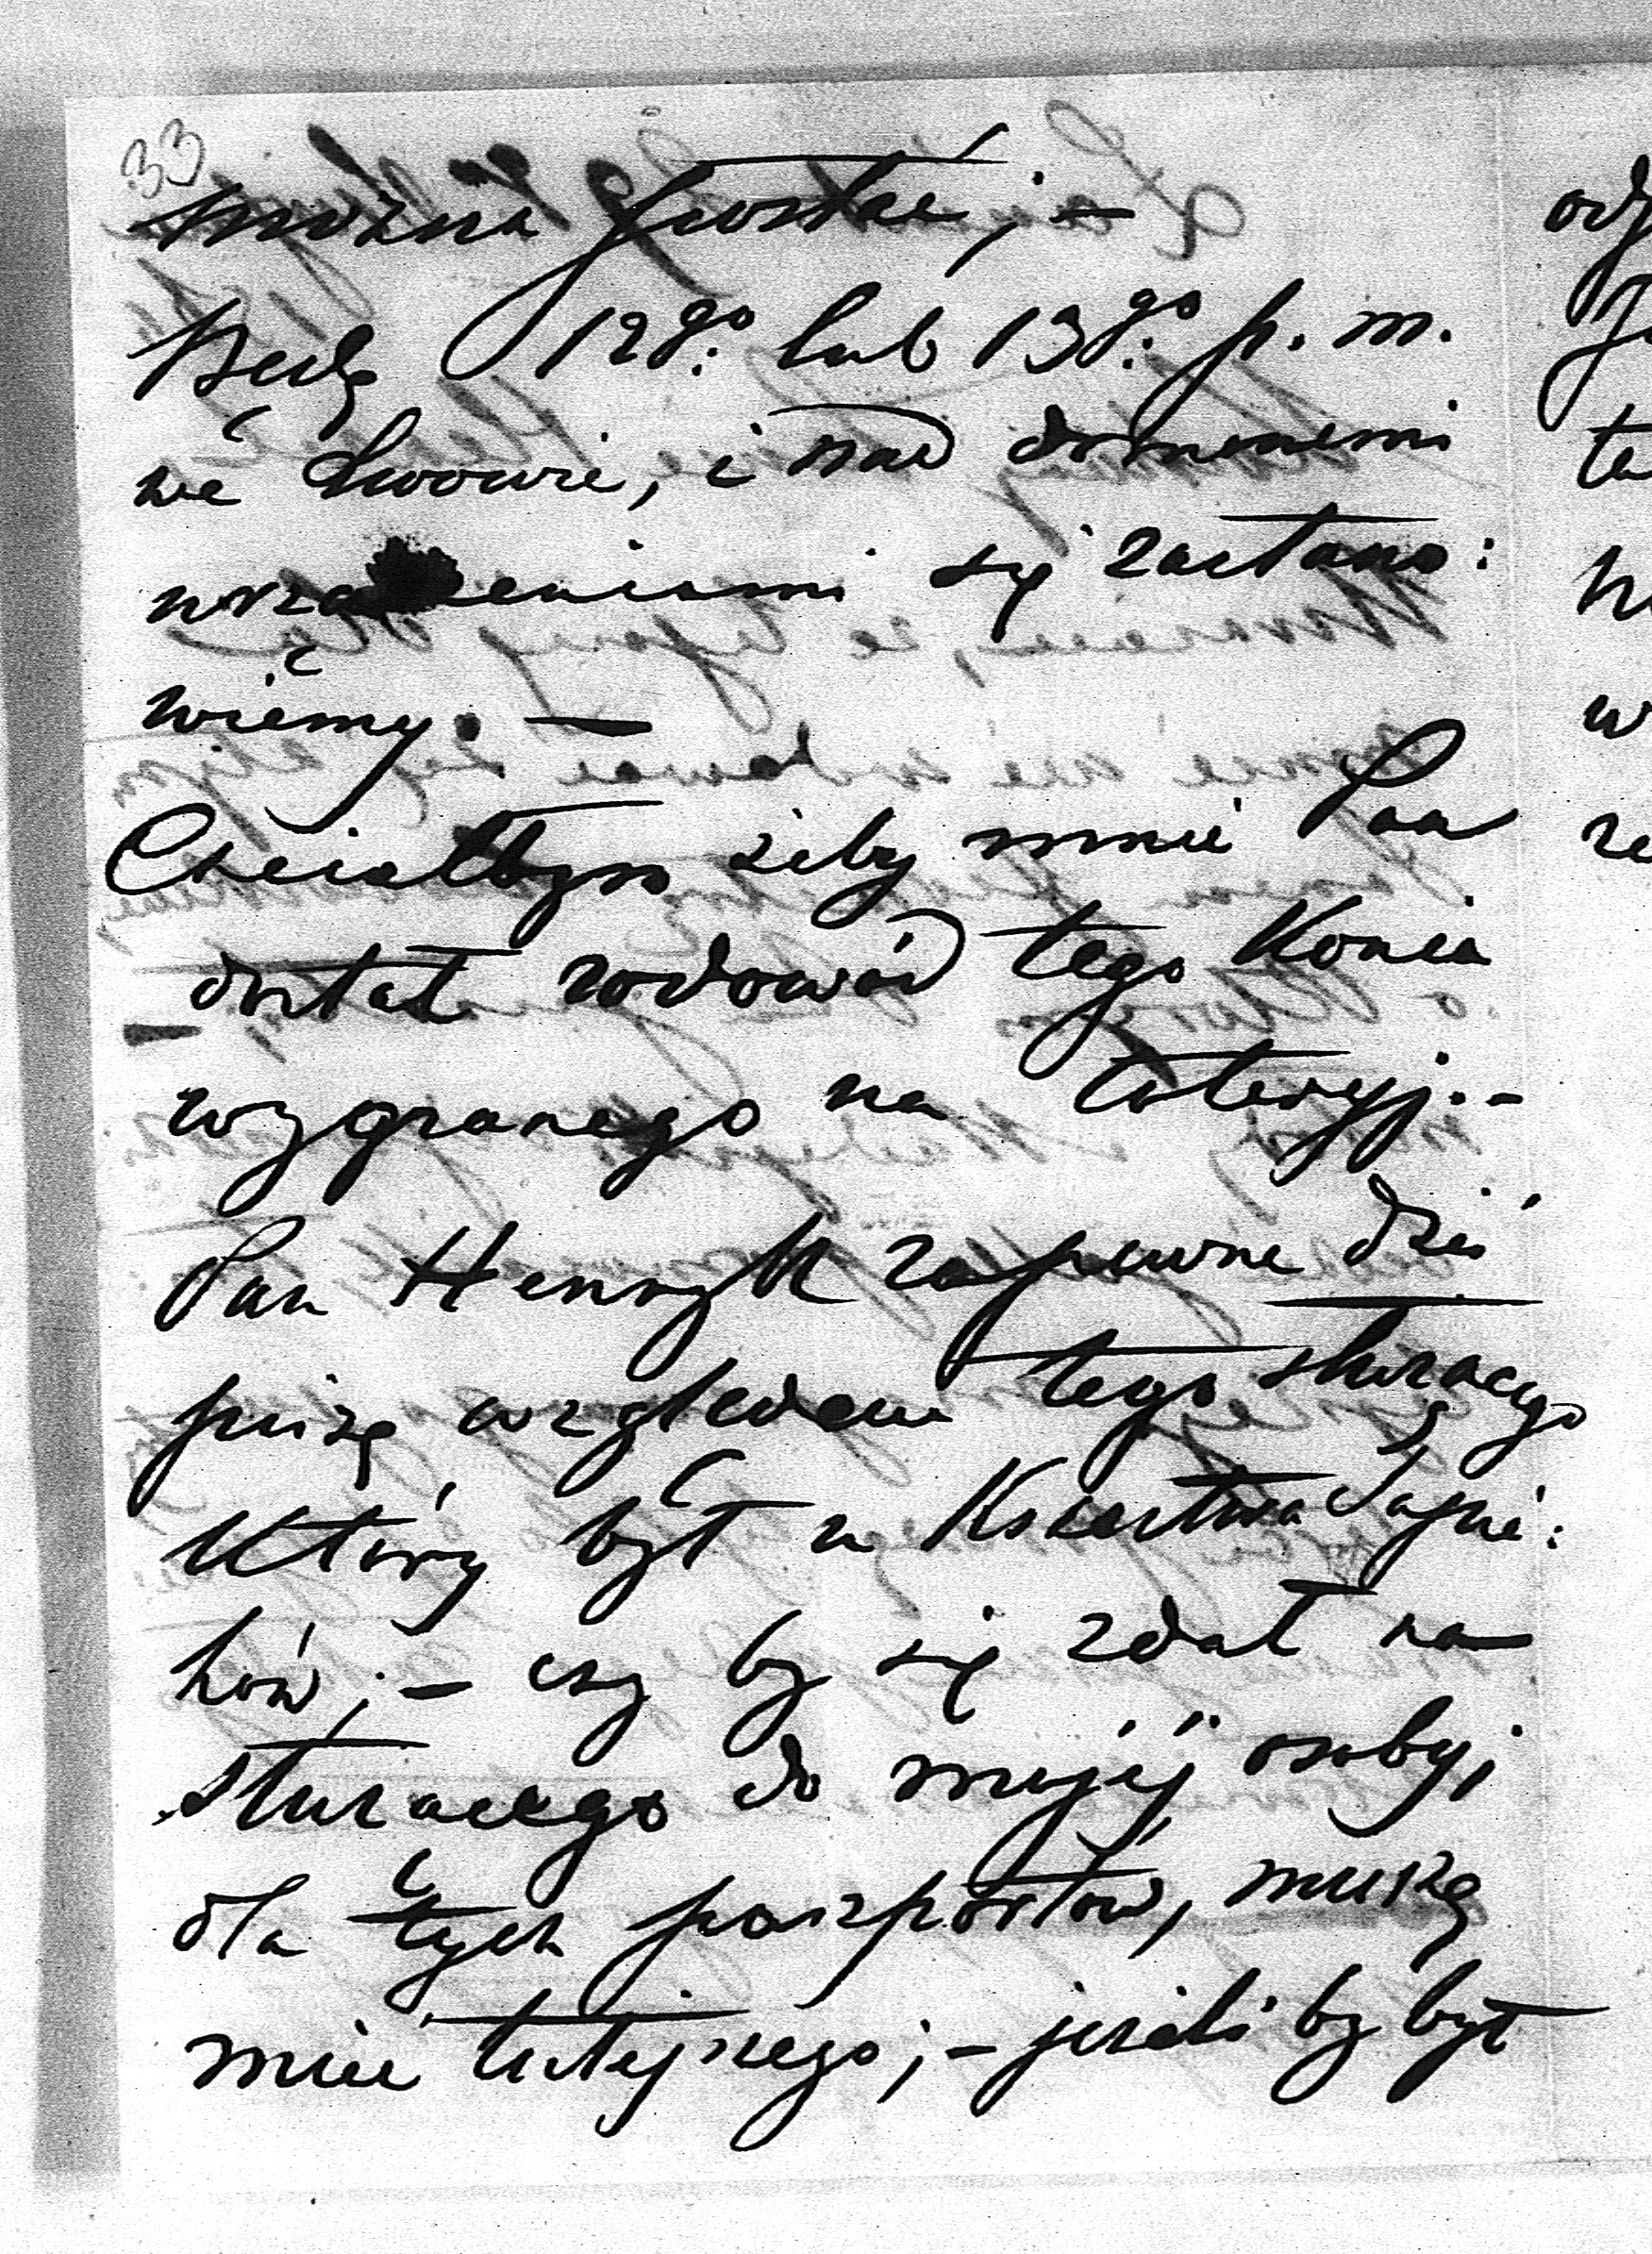 33
można posłać; –
Będę 12go. lub 13go. p. m.
wé Lwowie, i nad domowemi
się zastano:
wiémy. –
Chciałbym żeby mnie Pan
dostał rodowód tego Konia
wygranego na loteryj. –
Pan Henryk zapewne dziś
piszę względem tego służącego
Który był u Księstwa Sapie:
hów; – czy by się zdał na
służącego do mojéj osoby,
dla tych paszportów, muszę
mieć tutejszego; – jeżeli by był